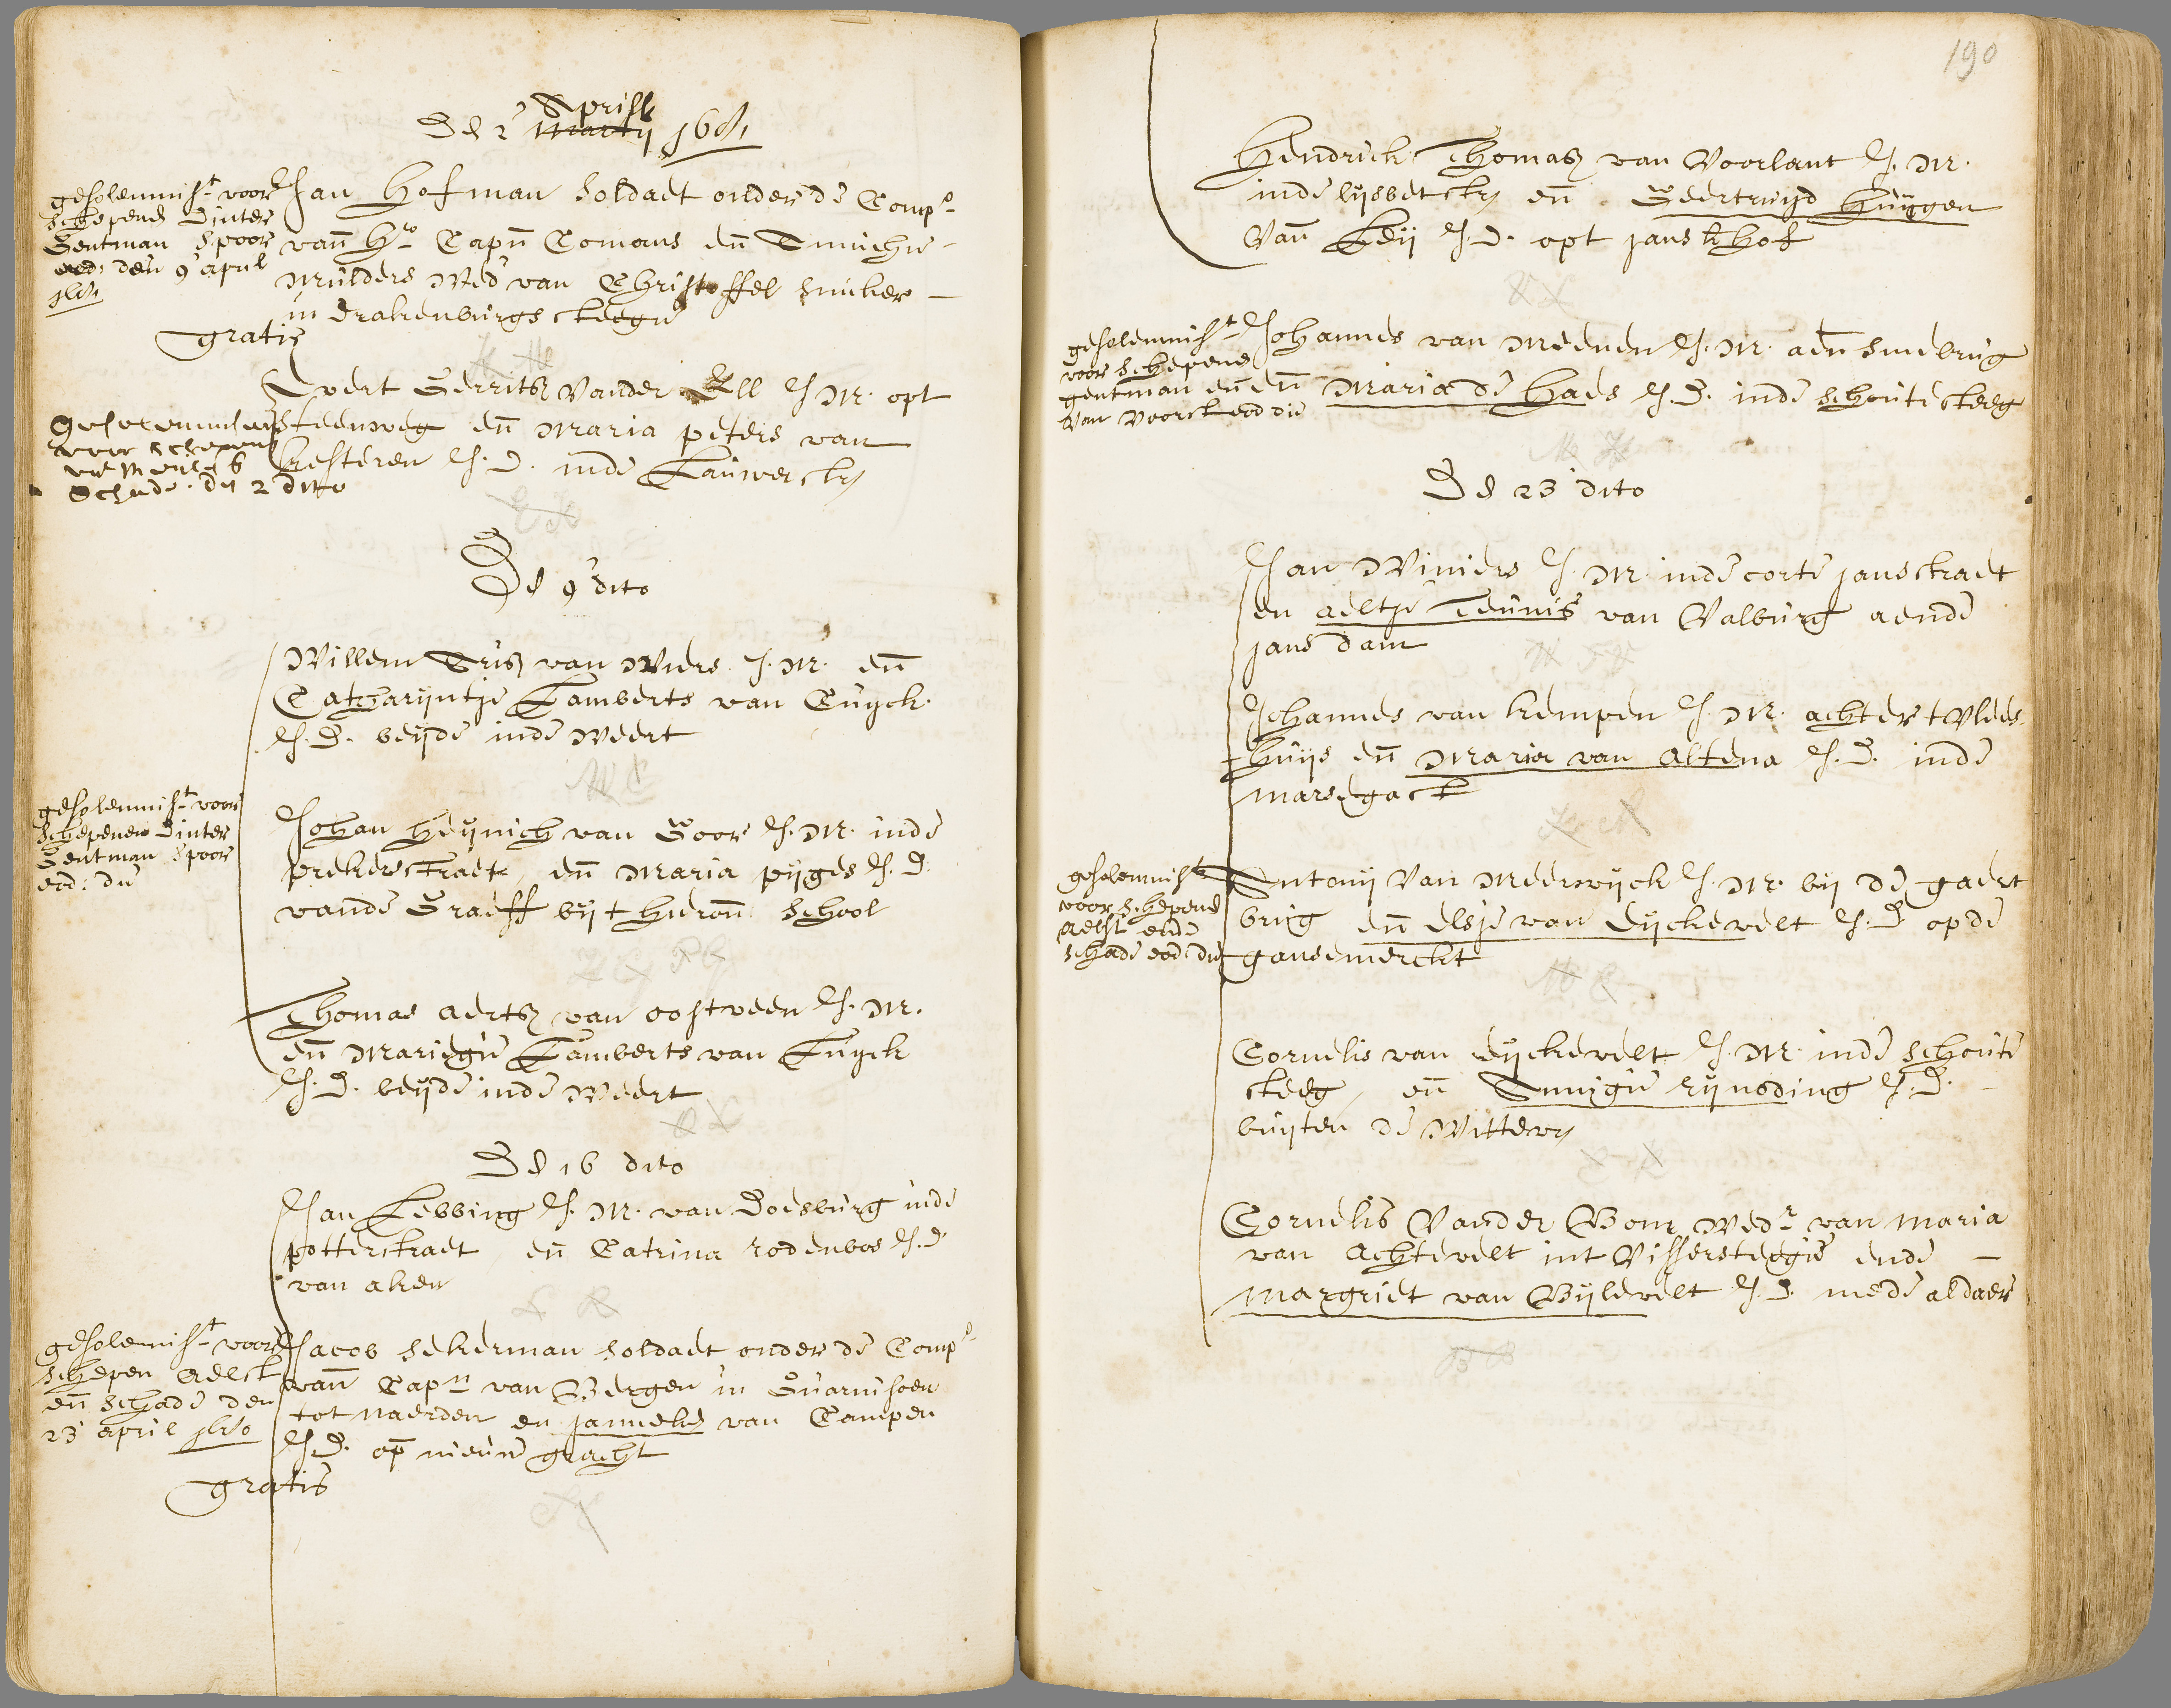 Den 2 Aprill Martij 1681
gesolemnist voor
schepenen Dinter
Gentman Spoor
eod: den 9 april
Jan Hofman soldaet onder de Comp.
van Hr. Capn Comans en Annichie
Mulders Wed van Christoffel
in Drakenburgs steegie
gratis
Evert Gerrits Vander Ell J. M. opt
steenweg en Maria peters van
kesteren J. D. inde Lauwerstr
voor schepens
Schade. den 2 ditto
De 9 dito
Willem van Wiers J. M. en
Catharijntje Lamberts van Cuyck
J. D. beyde inde Weert
gesolemnist voor
Schepenen Dinter
Gentman Spoor
eod: die
Johan Heijnich van Goor J. M. inde
prekerstraet, en Maria pijges J. D.
vande Graeff bij t hieron school
Thomas aerts van oostveen J. M.
en Mariegie Lamberts van Cuyck
J. D. beyde inde Weert
De 16 dito
Jan Lebbing J. M. van Doesburg inde
potterstraet, en Catrina rodenbos J. D
van aken
gesolemnist voor
schepen Aelst
en schade den
23 april
Jacob sekerman soldaet onder de Comp
van Capn van Bergen in Guarnisoen
tot naerden en janneke van Campen
J. D. op nieuwe gracht
gratis
190
Hendrick Thomas van Voorlant J. M.
inde lijsbetstr en Geertruyd Huijgen
Van Leij J. D. opt jans k hof
gesolemnist
voor schepens
gentman en
van Voorst eod die
Johannes van Meenen J. M. aen smebrug
en Maria de Haes J. D. inde schoute steeg
De 23 dito
Jan Winiers J. M. inde corte janstraet
en aeltje Teunis van Valburg aende
jans dam
Johannes van kempen J. M. achter t Vlees
huijs en Maria van Altena J. D. inde
marsegast
gesolemnist
voor schepens
Aelst ende
schade eod die
Antonij Van Meerwijck J. M. bij de gaert
brug en elsje van Eijckevelt J. D. op de
gansemerckt
Cornelis van eijckevelt J. M. inde schoute
steeg, en Annigie rijnsding J. D.
buijten de Wittevr
Cornelis Vander Bom Wedr van Maria
van Achtevelt int Vissersteegie ende
Margriet van Bijlevelt J. D. mede aldaer